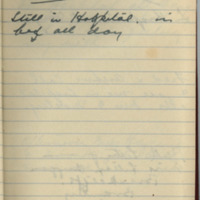 Still in Hospital. in
bed all day